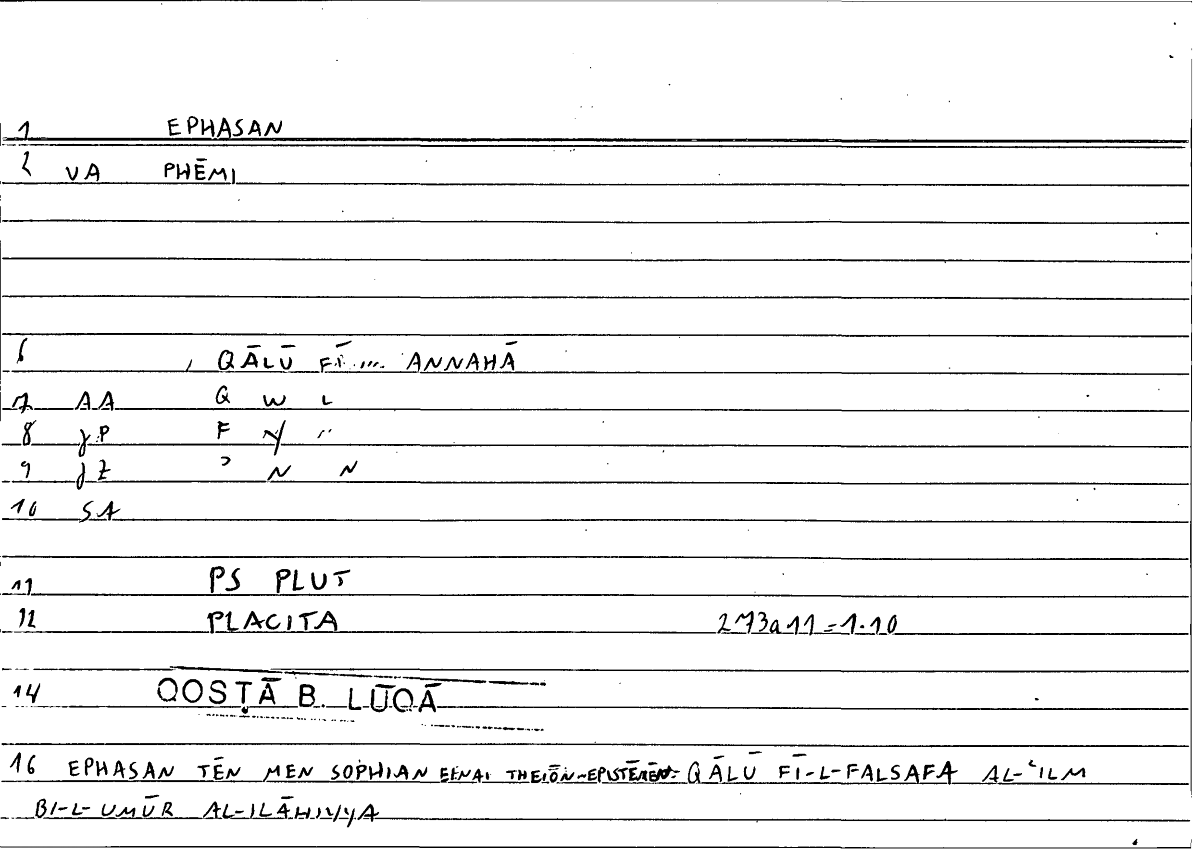 1 EPHASAN
2 VA PHĒMI
6 , QĀLŪ FĪ ... ANNAHĀ
7 AA Q W L
8 γP F Y ..
9 γZ ʾ N N
10 SA
11 PS PLUT
12 PLACITA 273a11=1.10
14 QOSṬĀ B. LŪQĀ
16 EPHASAN TĒN MEN SOPHIAN EENAI THEIŌN QĀLŪ FĪ-L-FALSAFA AL-ʿILM
BI-L-UMŪR AL-ILĀHIYYA